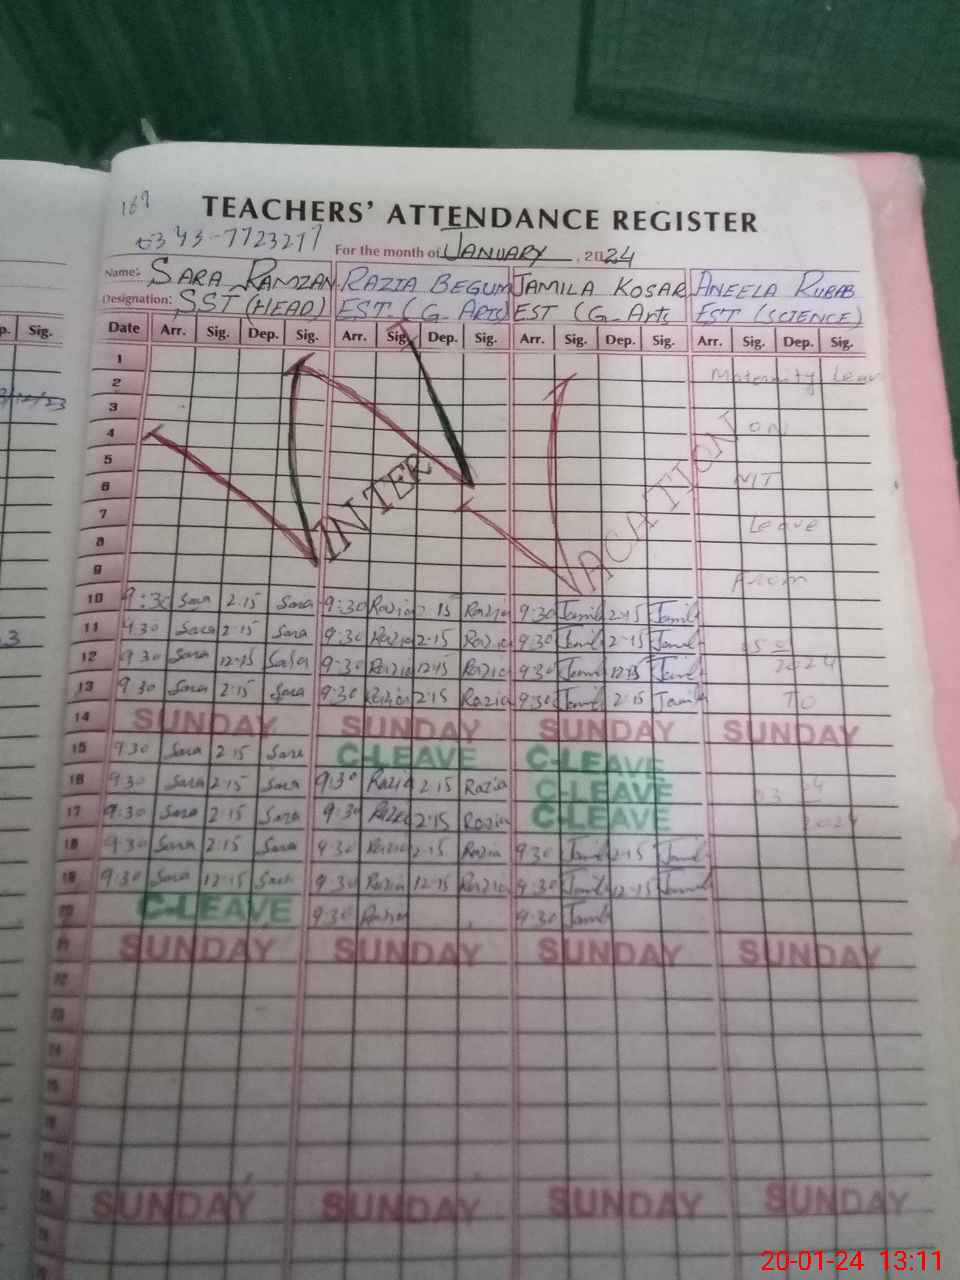 169
TEACHERS' ATTENDANCE REGISTER
0343-7723217
For the month of JANUARY, 2024
Name:- SARA RAMZAN RAZIA BEGUM JAMILA KOSAR ANEELA RUBAB
Designation: SST (HEAD) EST (G-Arts) EST (G-Arts EST (SCIENCE)
p. Sig. Date Arr. Sig. Dep. Sig. Arr. Sig. Dep. Sig. Arr. Sig. Dep. Sig. Arr. Sig. Dep. Sig.
1
2 Maternity Leav
3
4 ON
5
6 WINTER VACATION
7 Leave
8
9 From
10 9:30 Sara 2.15 Sara 9:30 Razia 2.15 Razia 9:30 Jamil 2.15 Jamil
11 9.30 Sara 2.15 Sara 9:30 Razia 2.15 Razia 9:30 Jamil 2.15 Jamil
12 9.30 Sara 12.15 Sara 9:30 Razia 12.15 Razia 9:30 Jamil 12.15 Jamil 2024
13 9.30 Sara 2:15 Sara 9:30 Razia 2.15 Razia 9:30 Jamil 2.15 Jamil TO
14 SUNDAY SUNDAY SUNDAY SUNDAY
15 9.30 Sara 2.15 Sara C-LEAVE C-LEAVE
16 9.30 Sara 2.15 Sara 9:30 Razia 2.15 Razia C-LEAVE
17 9:30 Sara 2.15 Sara 9:30 Razia 2.15 Razia C-LEAVE 2024
18 9:30 Sara 2.15 Sara 9.30 Razia 2.15 Razia 9.30 Jamil 2.15 Jamil
19 9:30 Sara 12.15 Sara 9.30 Razia 12.15 Razia 9:30 Jamil 12.15 Jamil
20 C-LEAVE 9.30 Razia 9.30 Jamil
21 SUNDAY SUNDAY SUNDAY SUNDAY
22
23
24
25
28 SUNDAY SUNDAY SUNDAY SUNDAY
20-01-24 13:11